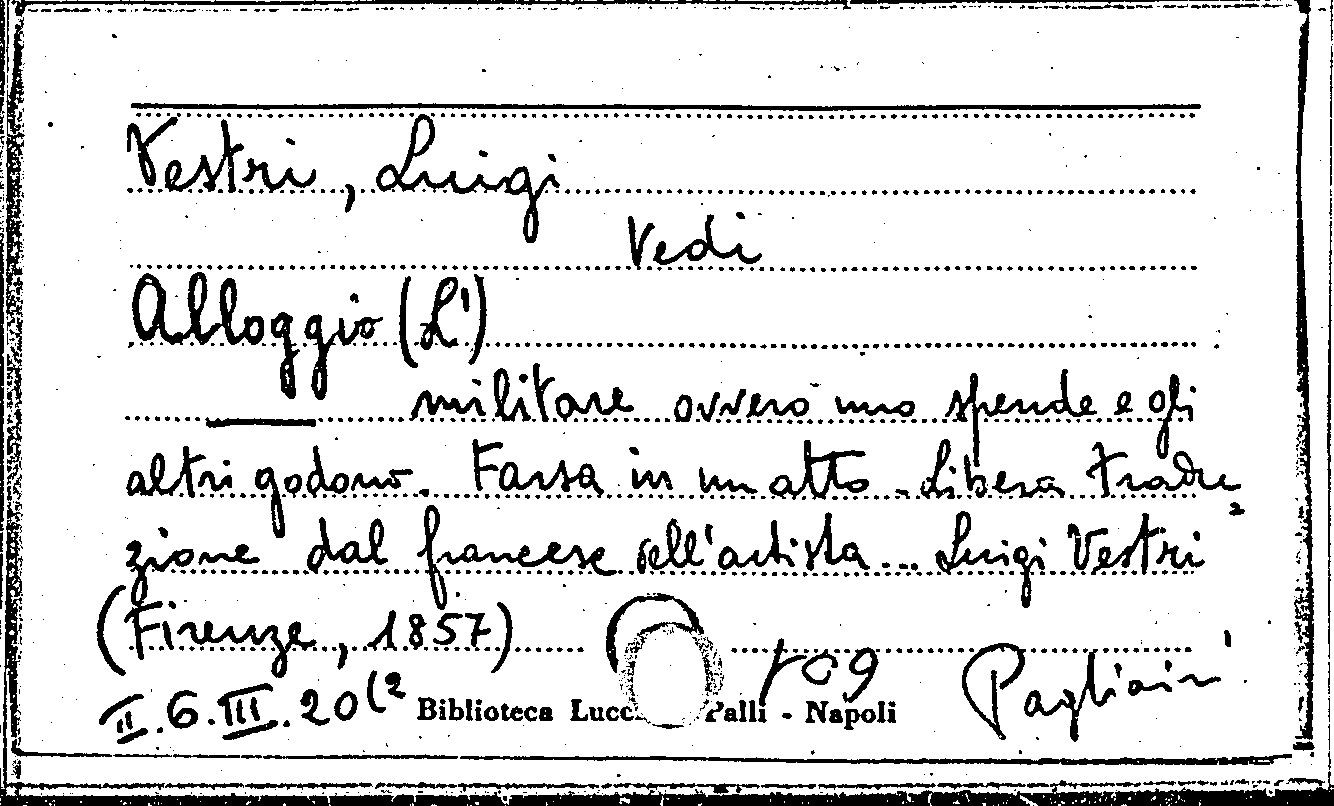 Vestri, Luigi
Vedi
Alloggio (L')
militare ovvero uno spende e gli
altri godono. Farsa in un atto. Libera tradu=
zione dal francese dell'artista... Luigi Vestri
(Firenze, 1857)
109 Pagliaini
II. 6. III. 20(2 Biblioteca Lucc Palli - Napoli